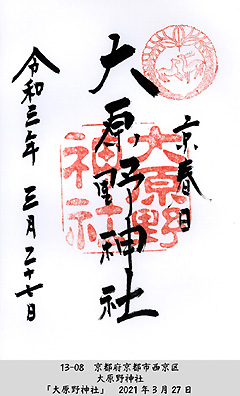 京春日
大原野神社
令和三年 三月二十七日
大原野
神社
13-08 京都府京都市西京区
大原野神社
「大原野神社」 2021年3月27日